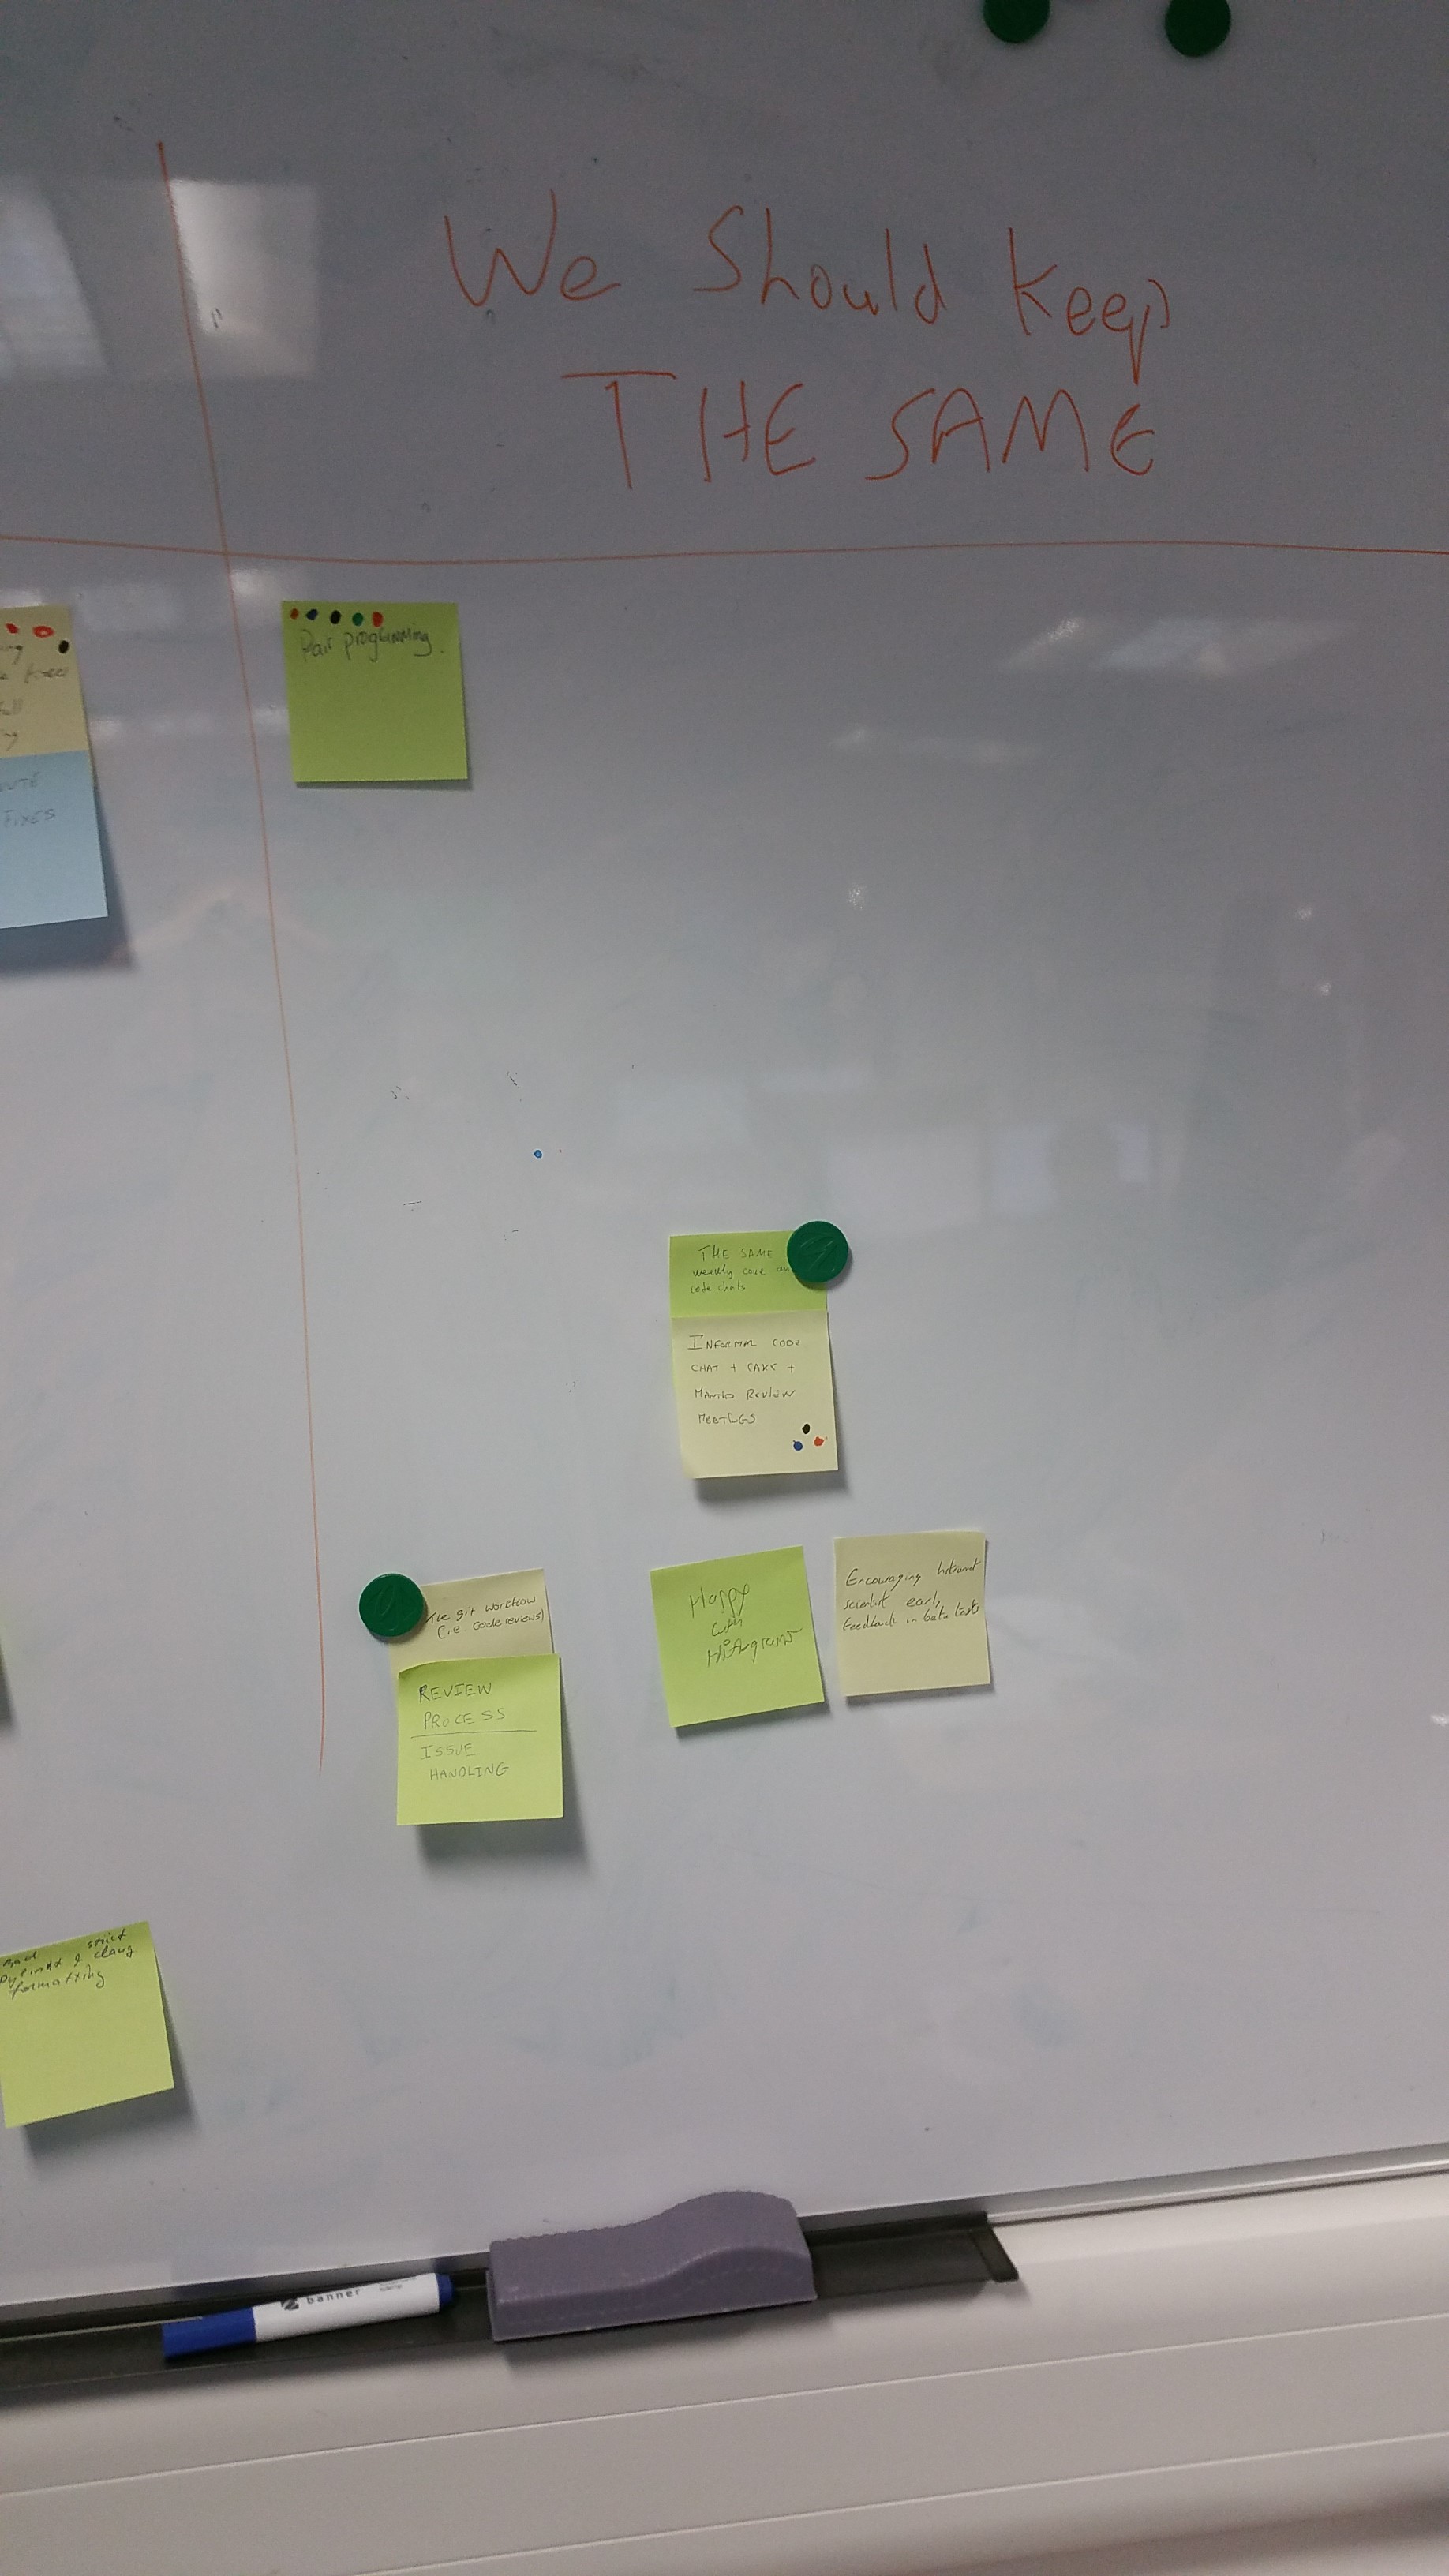 We Should Keep
THE SAME
Pair programming.
FIXES
THE SAME
weekly cake
code chats
INFORMAL CODE
CHAT + CAKE +
MANTID REVIEW
MEETINGS
git workflow
(i.e. code reviews)
REVIEW
PROCESS
ISSUE
HANDLING
Happy
with
Histograms
Encouraging instrument
scientist early
feedback in beta tests
strict
& clang
formatting
banner